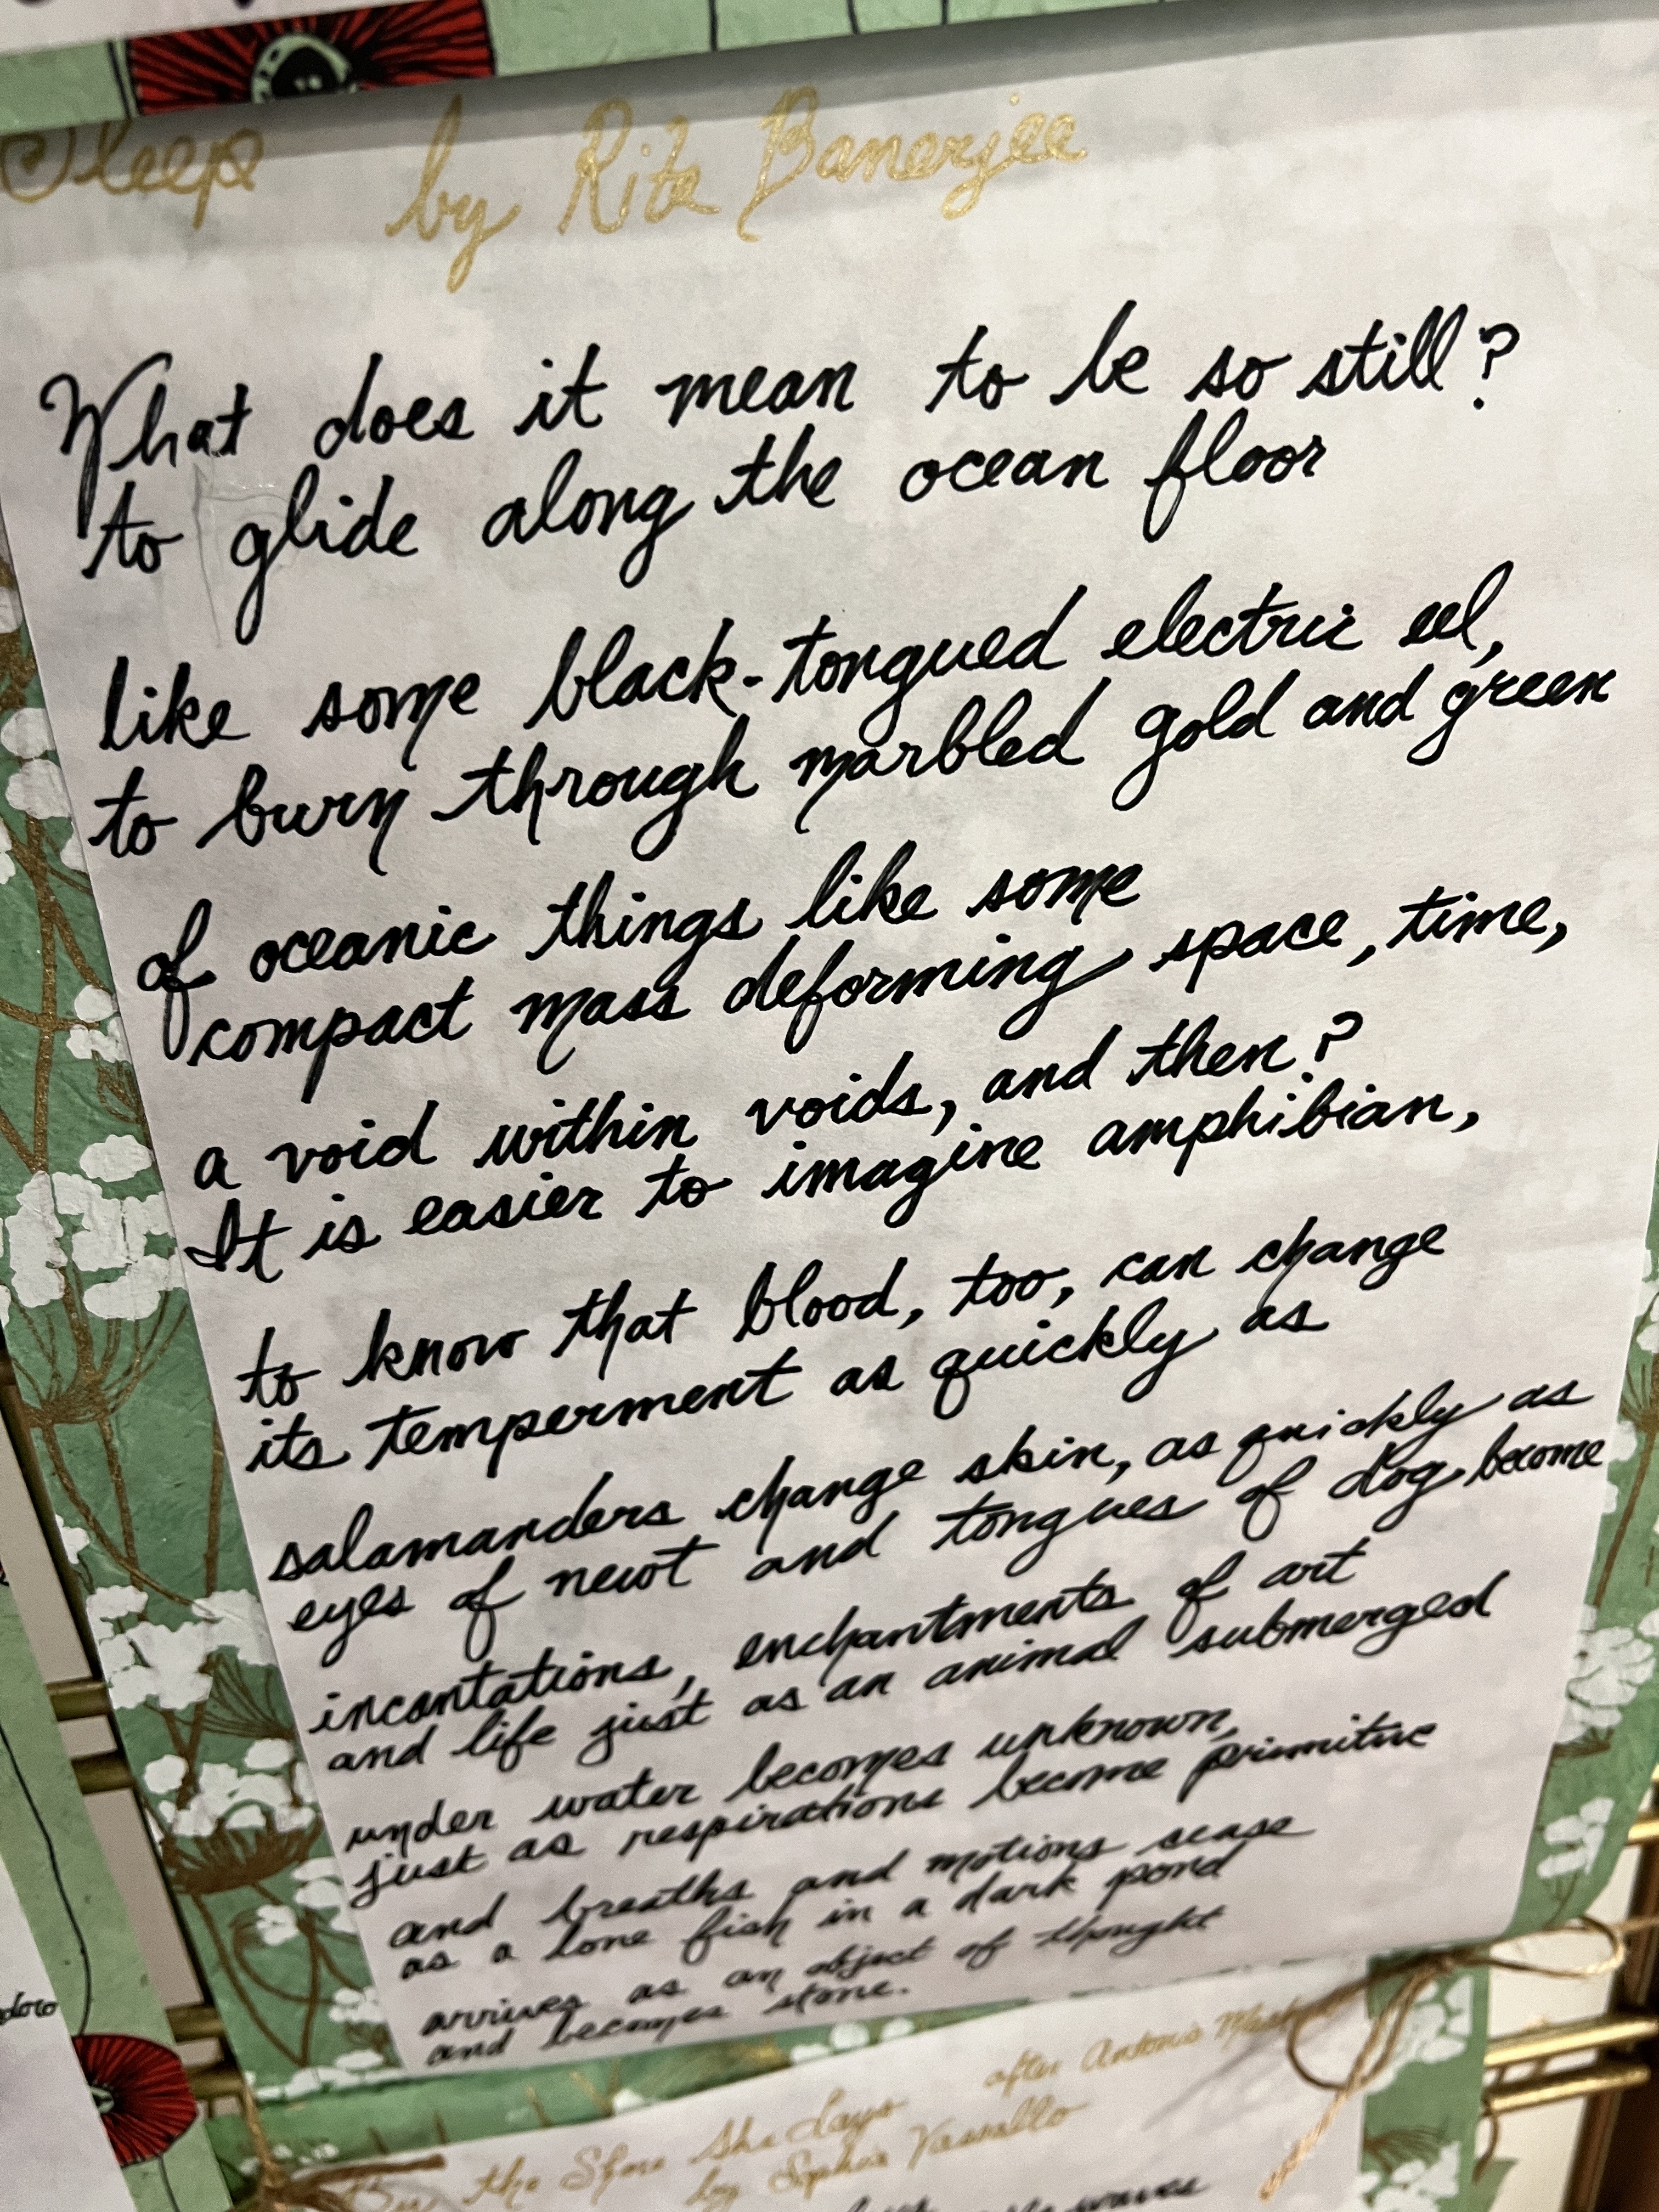 Sleep by Rita Banerjee
What does it mean to be so still?
to glide along the ocean floor
like some black-tongued electric eel,
to burn through marbled gold and green
of oceanic things like some
compact mass deforming space, time,
a void within voids, and then?
It is easier to imagine amphibian,
to know that blood, too, can change
its temperment as quickly as
salamanders change skin, as quickly as
eyes of newt and tongues of dog become
incantations, enchantments of art
and life just as an animal submerged
under water becomes unknown,
just as respirations become primitive
and breaths and motions cease
as a lone fish in a dark pond
arrives as an object of thought
and becomes stone.
the Shore She Lays after Antonio
by Sophia Vassallo
waves